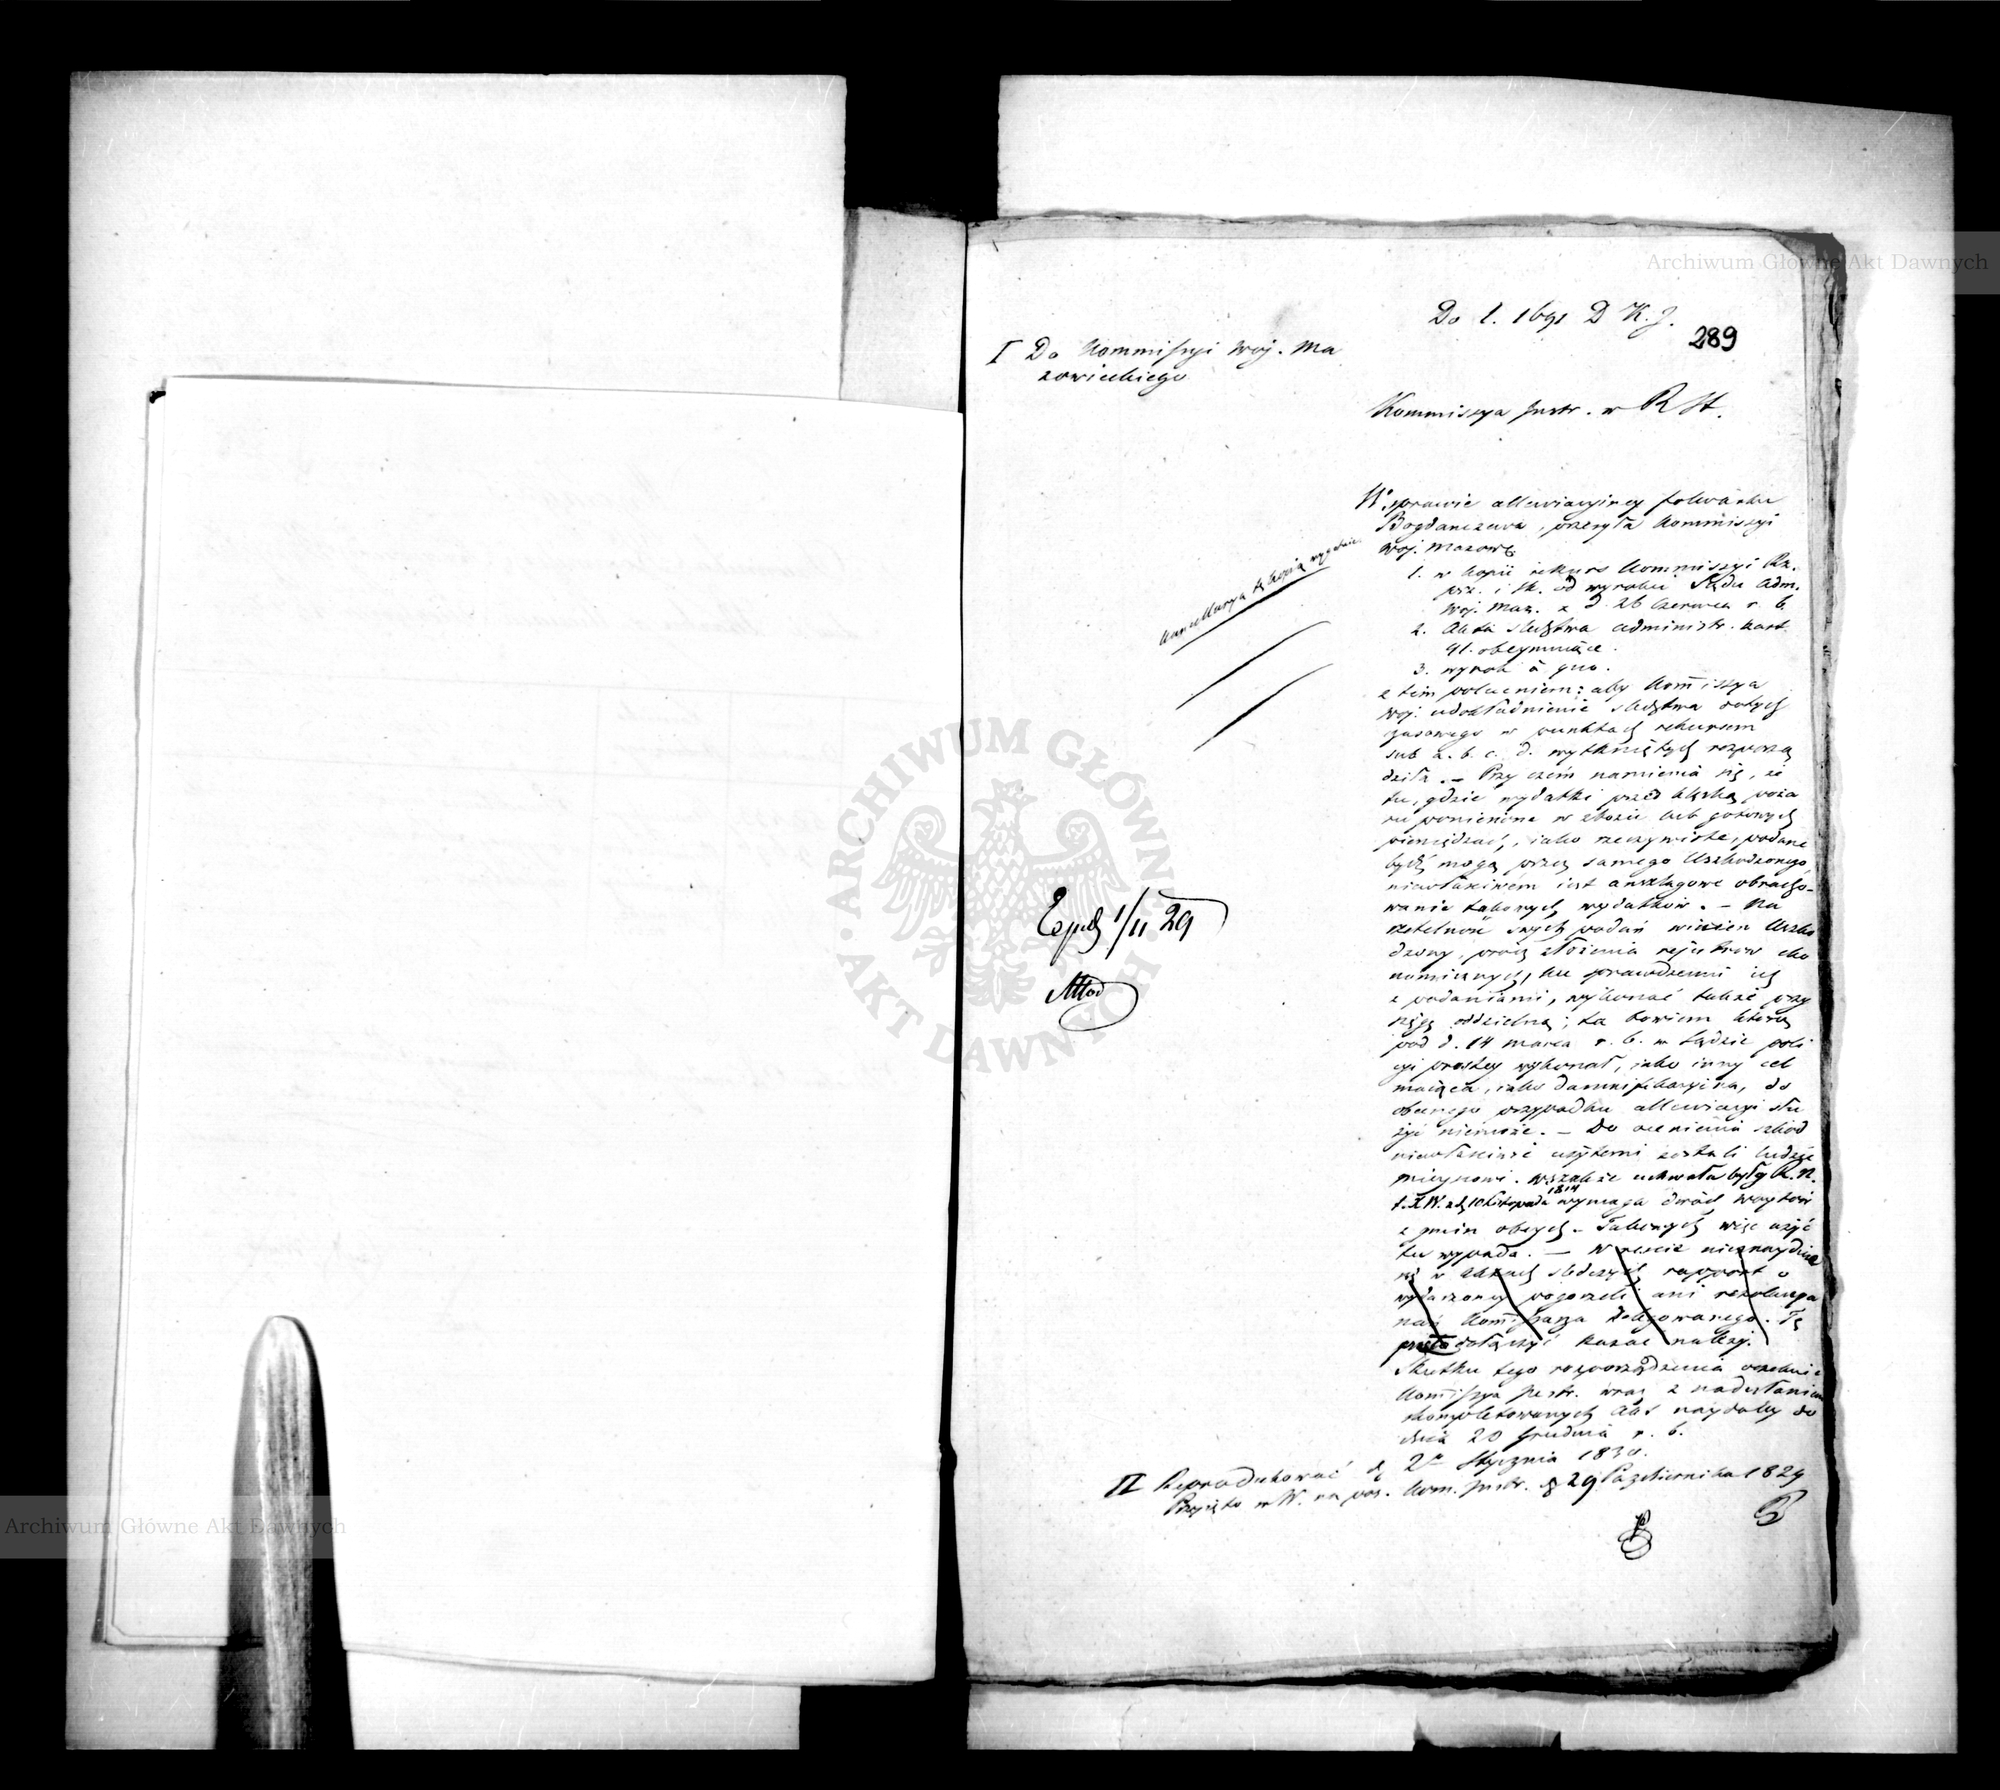 Do l. 1691 D K. J.
289
I Do Kommissyi Woj. Ma
zowieckiego
Kommissya Instr. w R St.
W sprawie allewiacyiney folwarku
Bogdanczewa, przesyła Kommissyi
Woj. Mazow.
1. w kopii rekurs Kommissyi Rz.
prz. i sk. od wyroku Sądu Adm.
Woj. Maz. z d. 26 Czerwca r. b.
2. Akta śledztwa administr. kart.
91. obeymuiące.
3. wyrok a quo.
z tem poleceniem: aby Kommissya
Woj. udokładnienie śledztwa dotych
czasowego w punktach rekursem
sub a. b. c. d. wytkniętych rozporzą
dziła. — Przy czem namienia się, że
tu, gdzie wydatki przed klęską poża
ru poniesione w zbożu lub gotowych
pieniądzach, iako rzeczywiste, podane
bydź mogą przez samego Uszkodzonego,
niewłaściwem iest anszlagowe obracho-
wanie takowych wydatków. — Na
rzetelność swych podań winien Uszko
dzony, prócz złożenia rejestrów eko
nomicznych, ku sprawdzeniu ich
z podaniami, wykonać także przy
sięgę oddzielną; ta bowiem którą
pod d. 14 marca r. b. w Sądzie poli
cyi prostey wykonał, iako inny cel
maiąca, iako damnifikacyina, do
obecnego przypadku allewiacyi słu
żyć niemoże. — Do ocenienia szkod
niewłaściwie użytemi zostali ludzie
mieyscowi. wszakże uchwała byłey R. N.
t. X W. z d. 10 Listopada 1814 wymaga dwóch woytów
z gmin obcych. — Takowych więc użyć
tu wypada. — W reście nieznayduie
się w aktach śledczych rapport o
wydarzoney pogorzeli ani rezolucya
nań Kommissarza Delegowanego. Tę
przeto dołączyć kazać należy.
Skutku tego rozporządzenia oczekuie
Kommissya Instr. wraz z nadesłaniem
skompletowanych Akt naydaley do
dnia 20 Grudnia r. b.
II Reprodukować d. 2go Stycznia 1830.
Przyięto w W. na pos. Kom. Instr. d 29 Pazdziernika 1829
Kancellarya tę kopią wygotuie
Exped 1/11 29